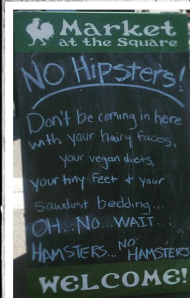 Market
at the Square
NO Hipsters!
Don't be coming in here
with your hairy faces,
your vegan diets,
your tiny feet & your
sawdust bedding...
OH...NO...WAIT...
HAMSTERS...NO
HAMSTERS
WELCOME!